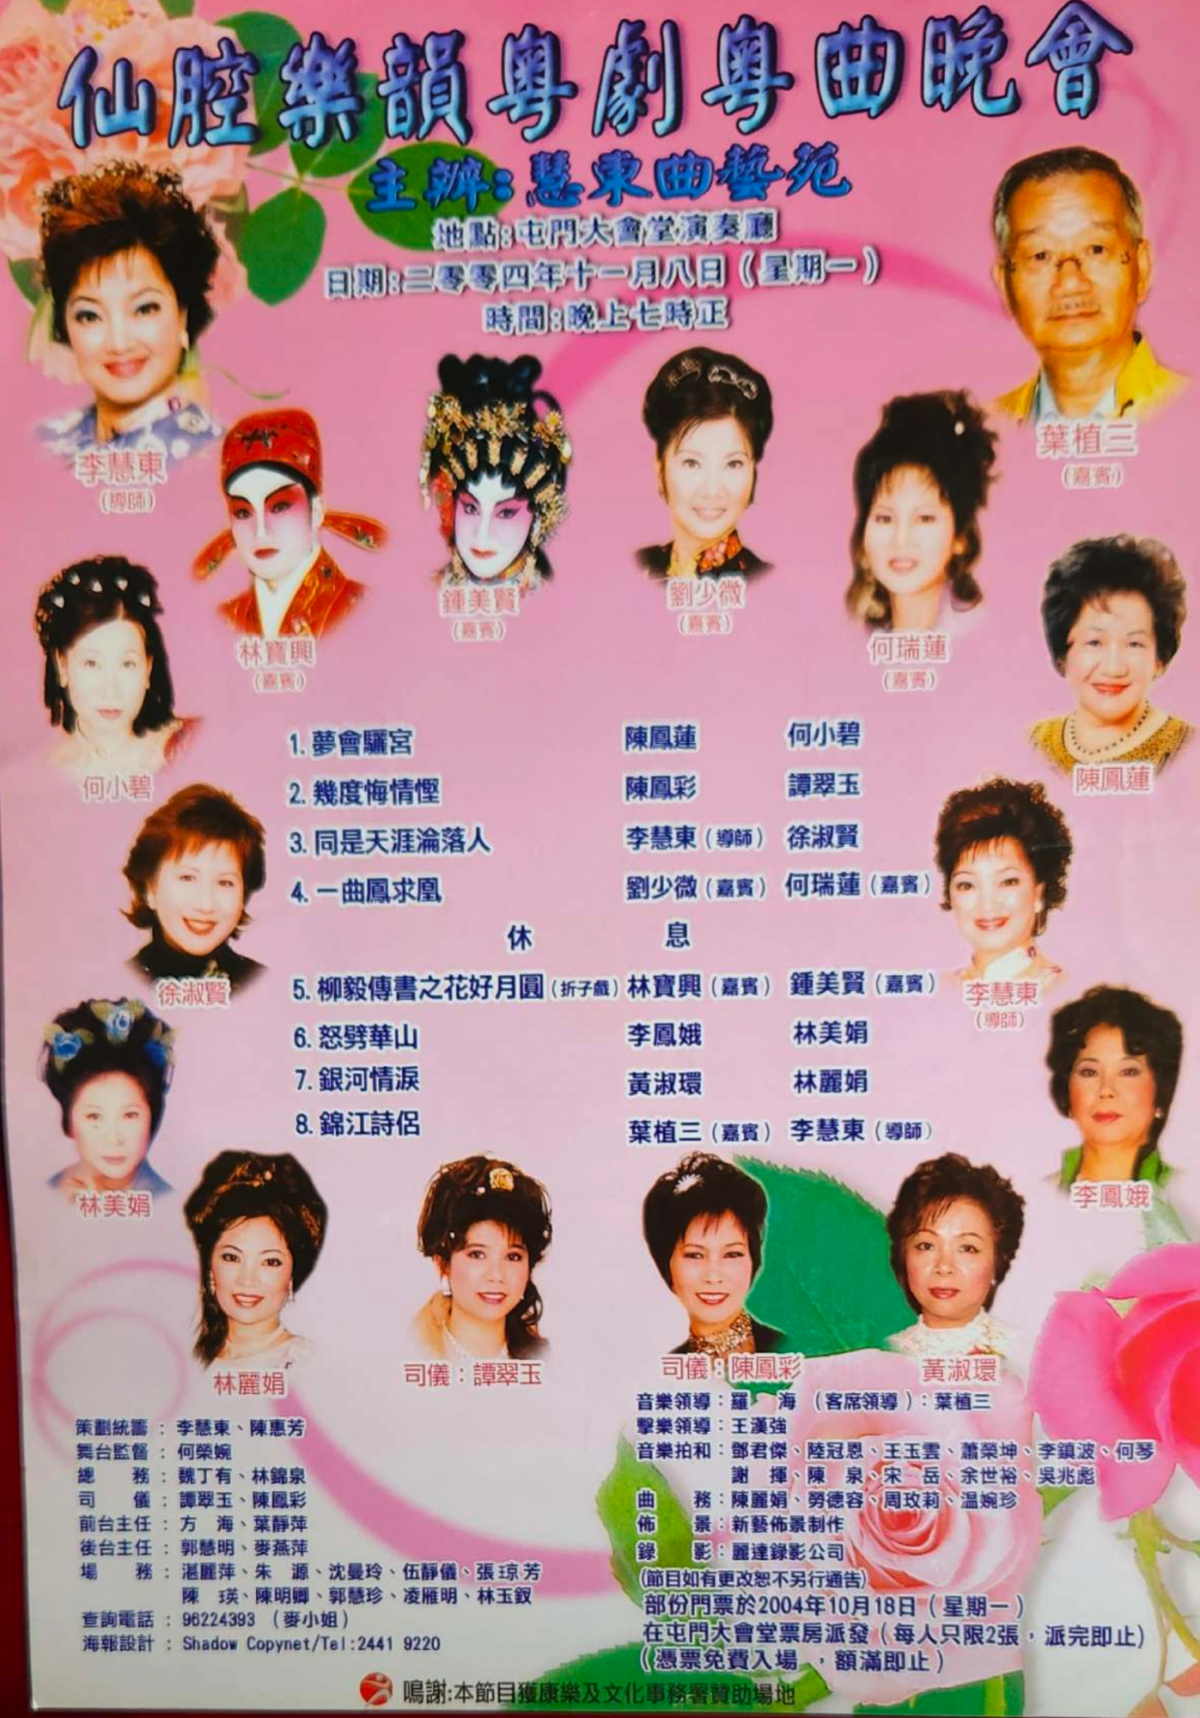 仙腔樂韻粵劇粵曲晚會
主辦:慧東曲藝苑
地點:屯門大會堂演奏廳
日期:二零零四年十一月八日(星期一)
時間:晚上七時正
李慧東
(導師)
葉植三
(嘉賓)
林寶興
(嘉賓)
鍾美賢
(嘉賓)
劉少微
(嘉賓)
何瑞蓮
(嘉賓)
何小碧
陳鳳蓮
1. 夢會驪宮 陳鳳蓮 何小碧
2. 幾度悔情慳 陳鳳彩 譚翠玉
3. 同是天涯淪落人 李慧東(導師) 徐淑賢
4. 一曲鳳求凰 劉少微(嘉賓) 何瑞蓮(嘉賓)
休 息
5. 柳毅傳書之花好月圓(折子戲) 林寶興(嘉賓) 鍾美賢(嘉賓)
6. 怒劈華山 李鳳娥 林美娟
7. 銀河情淚 黃淑環 林麗娟
8. 錦江詩侶 葉植三(嘉賓) 李慧東(導師)
徐淑賢
李慧東
(導師)
林美娟
李鳳娥
林麗娟
司儀:譚翠玉
司儀:陳鳳彩
黃淑環
策劃統籌:李慧東、陳惠芳
舞台監督:何榮婉
總 務:魏丁有、林錦泉
司 儀:譚翠玉、陳鳳彩
前台主任:方 海、葉靜萍
後台主任:郭慧明、麥燕萍
場 務:湛麗萍、朱 源、沈曼玲、伍靜儀、張琼芳
陳 瑛、陳明卿、郭慧珍、凌雁明、林玉釵
查詢電話:96224393 (麥小姐)
海報設計:Shadow Copynet/Tel:2441 9220
音樂領導:羅 海 (客席領導):葉植三
擊樂領導:王漢強
音樂拍和:鄧君傑、陸冠恩、王玉雲、蕭榮坤、李鎮波、何琴
謝 揮、陳 泉、宋 岳、余世裕、吳兆彪
曲 務:陳麗娟、勞德容、周玫莉、温婉珍
佈 景:新藝佈景制作
錄 影:麗達錄影公司
(節目如有更改恕不另行通告)
部份門票於2004年10月18日(星期一)
在屯門大會堂票房派發(每人只限2張,派完即止)
(憑票免費入場 ,額滿即止)
鳴謝:本節目獲康樂及文化事務署贊助場地